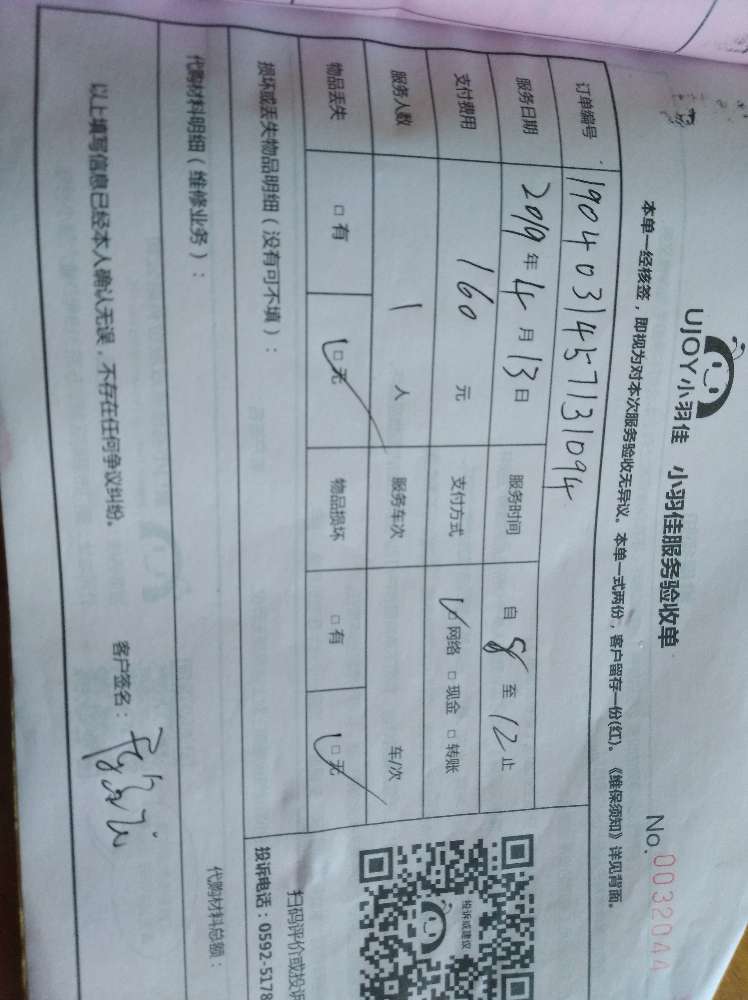 UJOY小羽佳 小羽佳服务验收单
No.0032044
本单一经核签，即视为对本次服务验收无异议。本单一式两份，客户留存一份(红)。《维保须知》详见背面。
订单编号 1904031457131094
服务日期 2019年4月13日 服务时间 自8至12止
支付费用 160元 支付方式 ☑网络 □现金 □转账
服务人数 1人 服务车次 车/次
物品丢失 □有 ☑无 物品损坏 □有 ☑无
损坏或丢失物品明细（没有可不填）：
代购材料明细（维修业务）：
代购材料总额：
以上填写信息已经本人确认无误，不存在任何争议纠纷。
客户签名：
投诉或建议
扫码评价或投诉
投诉电话：0592-5178